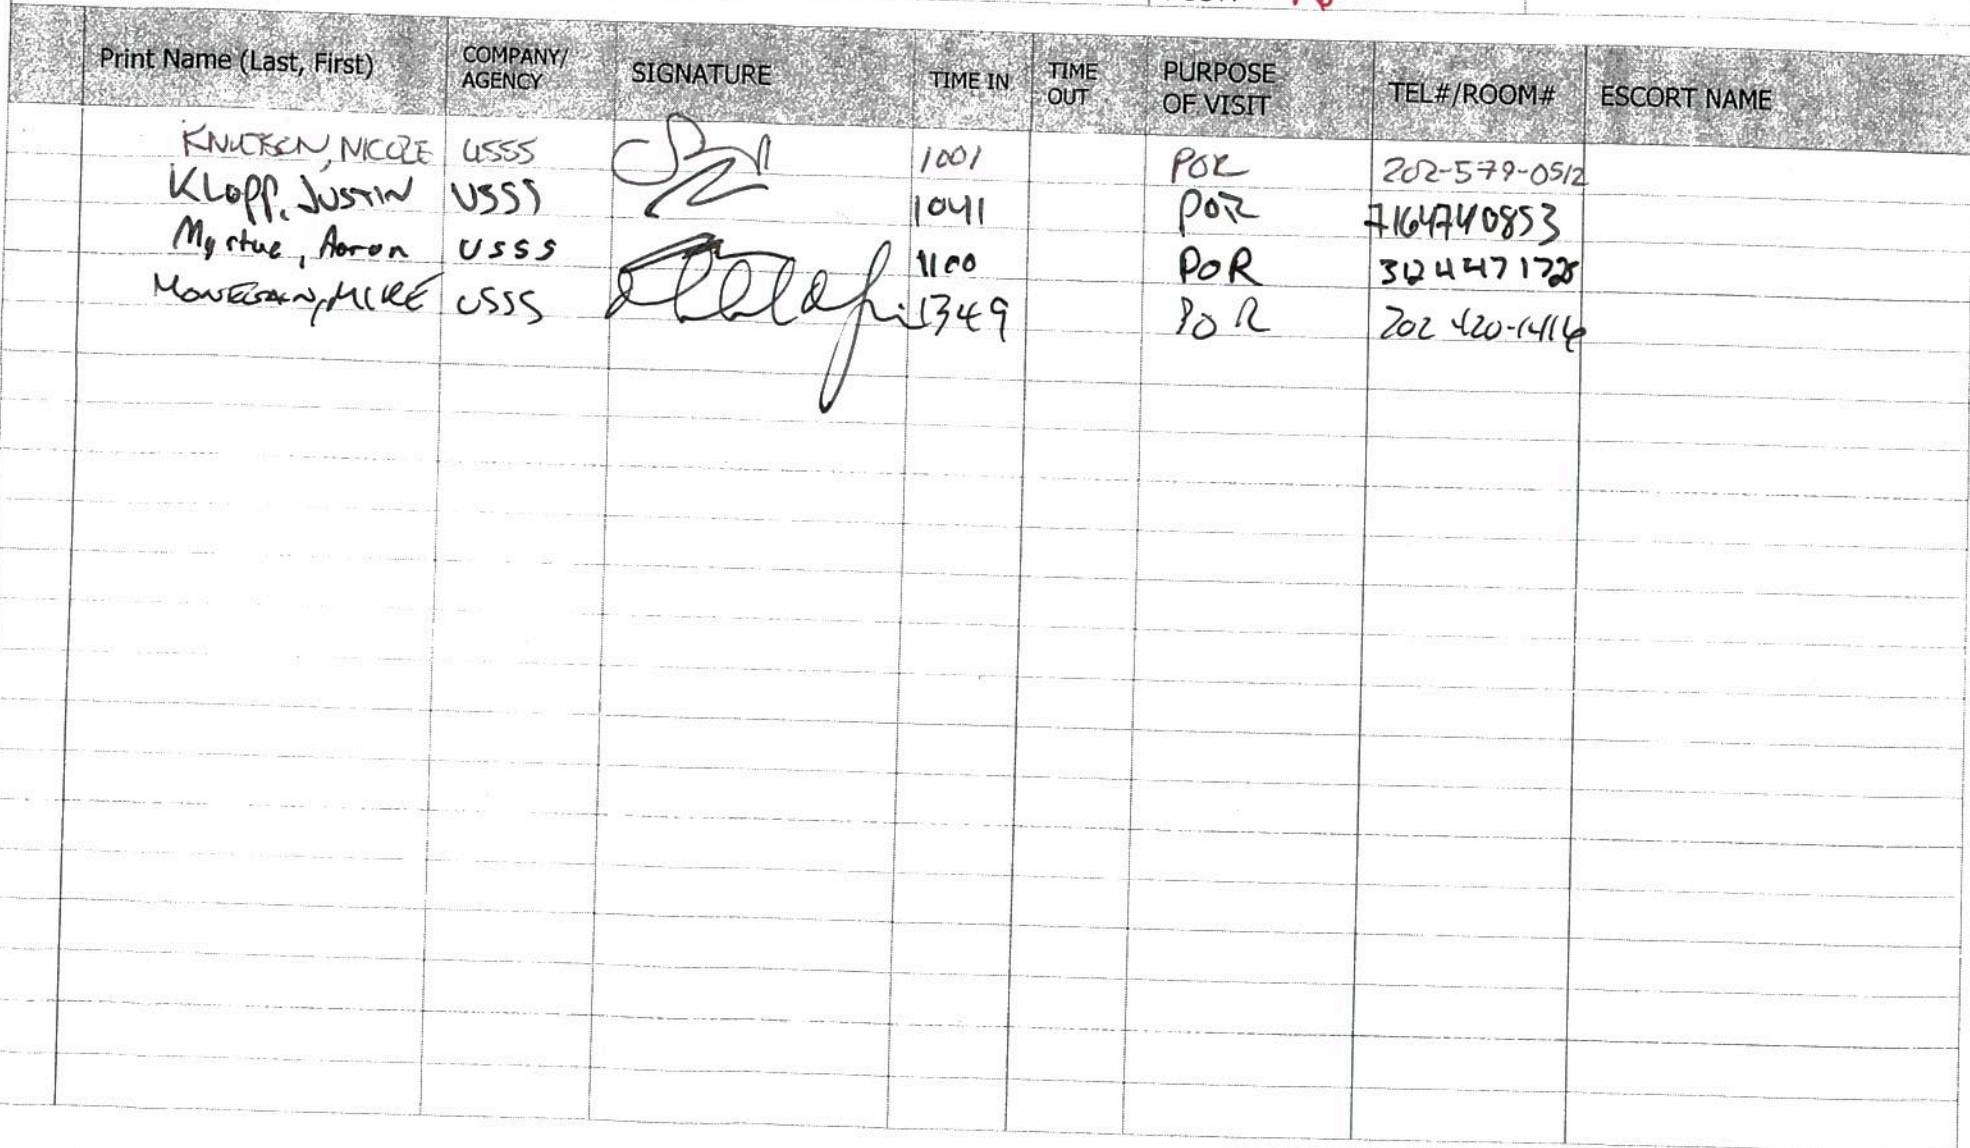 Print Name (Last, First) COMPANY/ AGENCY SIGNATURE TIME IN TIME OUT PURPOSE OF VISIT TEL#/ROOM# ESCORT NAME
KNUTSEN, NICOLE USSS 1001 POR 202-579-0512
Klopp, Justin USSS 1041 POR 7164740853
Myrtue, Aaron USSS 1100 POR
MIKE USSS 1349 POR 202 420-1416